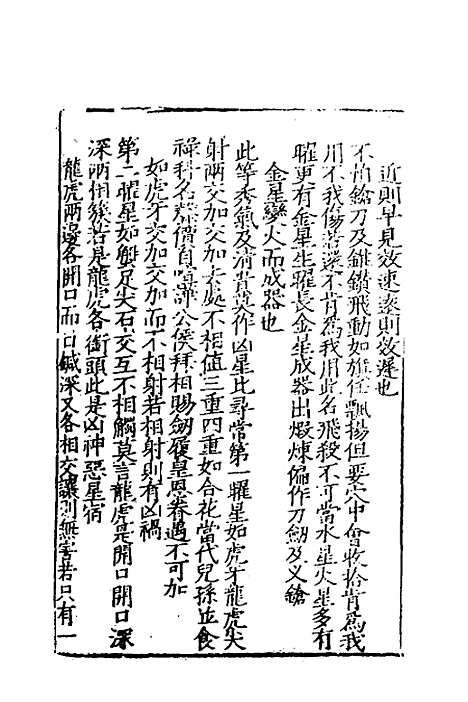 近則早見效速遠則效遲也
不怕鎗刀及錐鑽飛動如旗任飄揚但要穴中會收拾肯爲我
用不我傷若還不肯爲我用此名飛殺不可當水星火星多有
曜更有金星生曜長金星成器出煅煉偏作刀劒及叉鎗
金星變火而成器也
此等秀氣及清貴莫作凶星比尋常第一曜星如虎牙龍虎尖
射兩交加交加去處不相值三重四重如合花當代兒孫並食
祿科名聲價自喧譁公侯拜相賜劒履皇恩眷遇不可加
如虎牙交加交加而不相射若相射則有凶禍
第二曜星如蟹足尖石交互不相觸莫言龍虎是開口開口深
深兩相簇若是龍虎各銜頭此是凶神惡星宿
龍虎兩邊各開口而口鍼深又各相交讓則無害若只有一